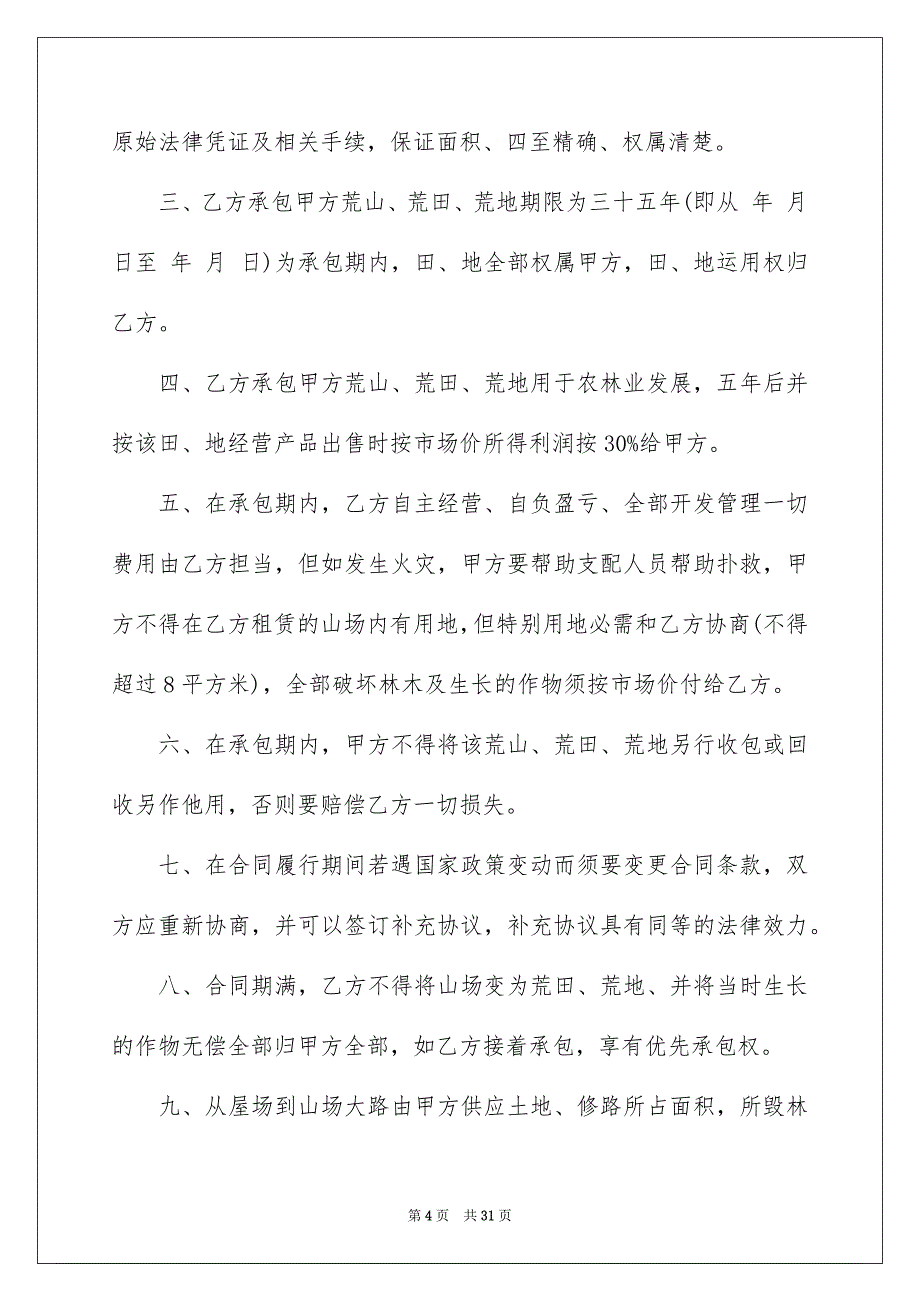 原始法律凭证及相关手续，保证面积、四至精确、权属清楚。
三、乙方承包甲方荒山、荒田、荒地期限为三十五年(即从 年 月
日至 年 月 日)为承包期内，田、地全部权属甲方，田、地运用权归
乙方。
四、乙方承包甲方荒山、荒田、荒地用于农林业发展，五年后并
按该田、地经营产品出售时按市场价所得利润按30%给甲方。
五、在承包期内，乙方自主经营、自负盈亏、全部开发管理一切
费用由乙方担当，但如发生火灾，甲方要帮助支配人员帮助扑救，甲
方不得在乙方租赁的山场内有用地,但特别用地必需和乙方协商(不得
超过8平方米)，全部破坏林木及生长的作物须按市场价付给乙方。
六、在承包期内，甲方不得将该荒山、荒田、荒地另行收包或回
收另作他用，否则要赔偿乙方一切损失。
七、在合同履行期间若遇国家政策变动而须要变更合同条款，双
方应重新协商，并可以签订补充协议，补充协议具有同等的法律效力。
八、合同期满，乙方不得将山场变为荒田、荒地、并将当时生长
的作物无偿全部归甲方全部，如乙方接着承包，享有优先承包权。
九、从屋场到山场大路由甲方供应土地、修路所占面积，所毁林
第4页 共31页